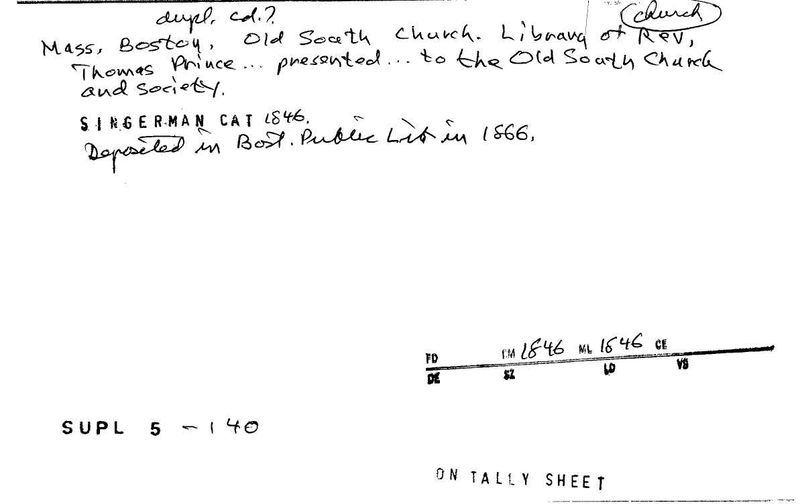 dupl. cd.?
church
Mass, Boston, Old South Church. Library of Rev,
Thomas Prince... presented... to the Old South Church
and society.
SINGERMAN CAT 1846.
Deposited in Bost. Public Lib in 1866.
FD EM 1846 ML 1846 CE
DE SZ LO VS
SUPL 5 - 140
ON TALLY SHEET